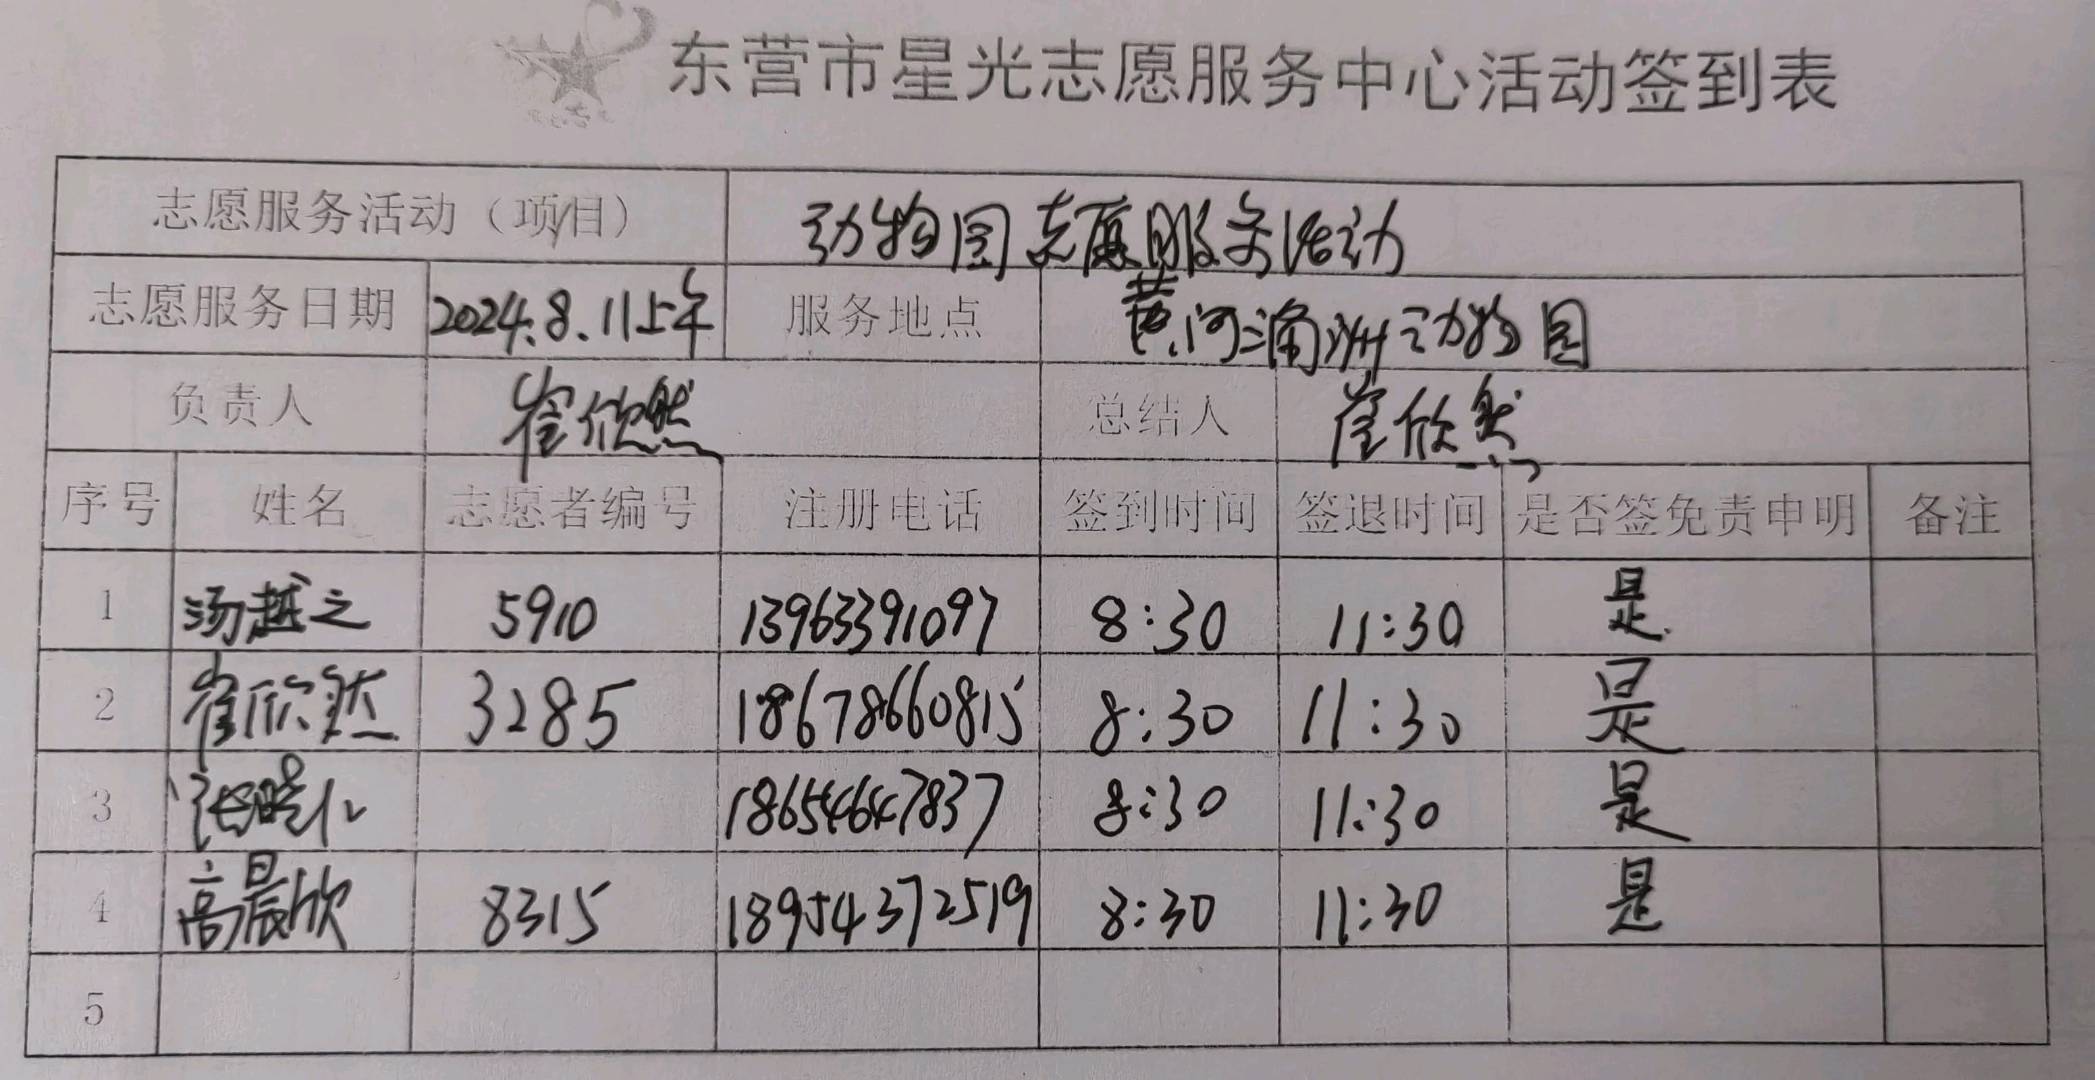 东营市星光志愿服务中心活动签到表
志愿服务活动（项目） 动物园志愿服务活动
志愿服务日期 2024.8.11上午 服务地点 黄河三角洲动物园
负责人 崔欣然 总结人 崔欣然
序号 姓名 志愿者编号 注册电话 签到时间 签退时间 是否签免责申明 备注
1 汤越之 5910 13963391097 8:30 11:30 是
2 崔欣然 3285 18678660815 8:30 11:30 是
3 18654647837 8:30 11:30 是
4 高晨欣 8315 18954372519 8:30 11:30 是
5